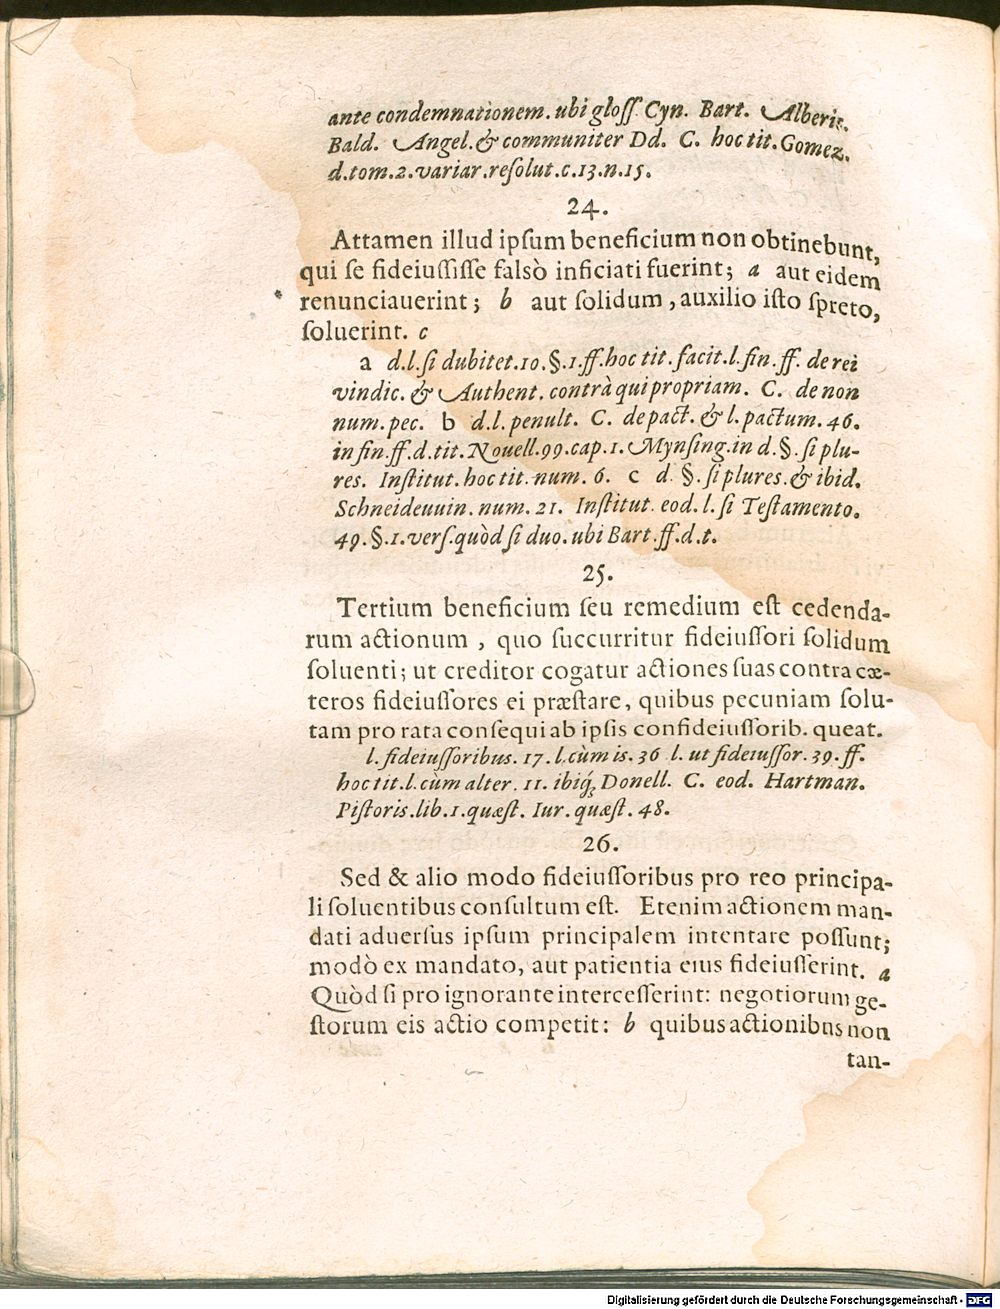 ante condemnationem. ubi gloſſ. Cyn. Bart. Alberic.
Bald. Angel. & communiter Dd. C. hoc tit. Gomez.
d. tom. 2. variar. reſolut. c. 13. n. 15.
24.
Attamen illud ipſum beneficium non obtinebunt,
qui ſe fideiuſſiſſe falsò inficiati fuerint; a aut eidem
renunciauerint; b aut ſolidum, auxilio iſto ſpreto,
ſoluerint. c
a d. l. ſi dubitet. 10. §. 1. ff. hoc tit. facit. l. fin. ff. de rei
vindic. & Authent. contrà qui propriam. C. de non
num. pec. b d. l. penult. C. de pact. & l. pactum. 46.
in fin. ff. d. tit. Novell. 99. cap. 1. Mynſing. in d. §. ſi plu-
res. Inſtitut. hoc tit. num. 6. c d. §. ſi plures. & ibid.
Schneideuuin. num. 21. Inſtitut. eod. l. ſi Teſtamento.
49. §. 1. verſ. quòd ſi duo. ubi Bart. ff. d. t.
25.
Tertium beneficium ſeu remedium eſt cedenda-
rum actionum, quo ſuccurritur fideiuſſori ſolidum
ſoluenti; ut creditor cogatur actiones ſuas contra cæ-
teros fideiuſſores ei præſtare, quibus pecuniam ſolu-
tam pro rata conſequi ab ipſis confideiuſſorib. queat.
l. fideiuſſoribus. 17. l. cùm is. 36 l. ut fideiuſſor. 39. ff.
hoc tit. l. cùm alter. 11. ibiq́; Donell. C. eod. Hartman.
Piſtoris. lib. 1. quæſt. Iur. quæſt. 48.
26.
Sed & alio modo fideiuſſoribus pro reo principa-
li ſoluentibus conſultum eſt. Etenim actionem man-
dati aduerſus ipſum principalem intentare poſſunt;
modò ex mandato, aut patientia eius fideiuſſerint. a
Quòd ſi pro ignorante interceſſerint: negotiorum ge-
ſtorum eis actio competit: b quibus actionibus non
tan-
Digitalisierung gefördert durch die Deutsche Forschungsgemeinschaft - DFG